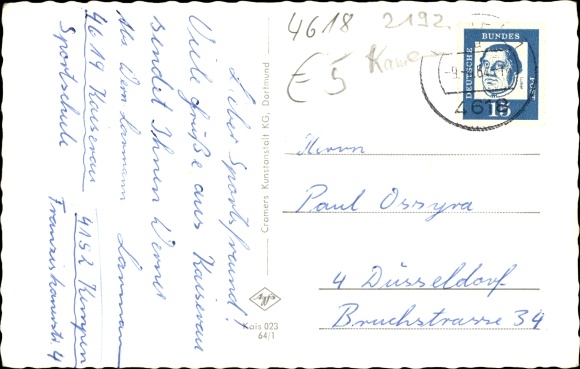 Lieber Sportsfreund!
Viele Grüße aus Kaiserau
sendet Ihnen Werner
Abs. Wern. Lorman
4619 Kaiserau 4152 Kempen
Sportschule Franziskanerstr. 4
Cramers Kunstanstalt KG, Dortmund
Agfa
Kais 023
64/1
4618 2192.
€ 5 Kamen
DEUTSCHE BUNDES
15
4618
Herrn
Paul Ossyra
4 Düsseldorf
Bruchstrasse 34